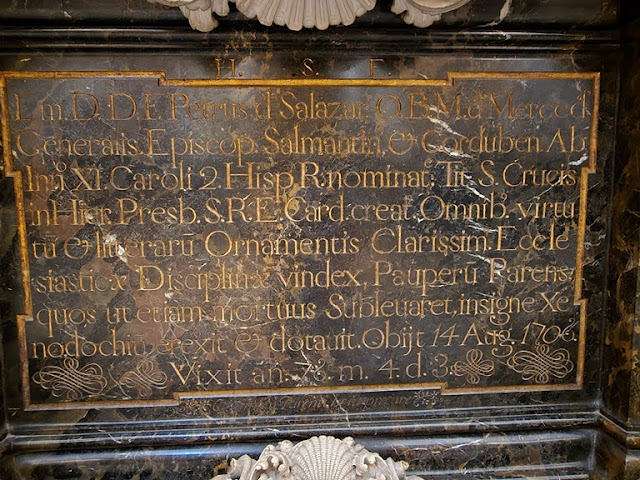 H. S. E.
Em. D. D. F. Petrus d Salazar, O. B. M. d Merced
Generalis, Episcop. Salmantin. & Corduben. Ab
Inn. XI. Caroli 2. Hisp R. nominat. Tit. S. Crucis
in Hier. Presb. S. R. E. Card. creat. Omnib. virtu
tū & litterarū Ornamentis Clarissim. Eccle
siasticæ Disciplinæ vindex, Pauperū Parens,
quos ut etiam mortuus Subleuaret, insigne Xe
nodochiū erexit & dotauit. Obijt 14 Aug. 1706.
Vixit an. 76. m. 4. d. 3.